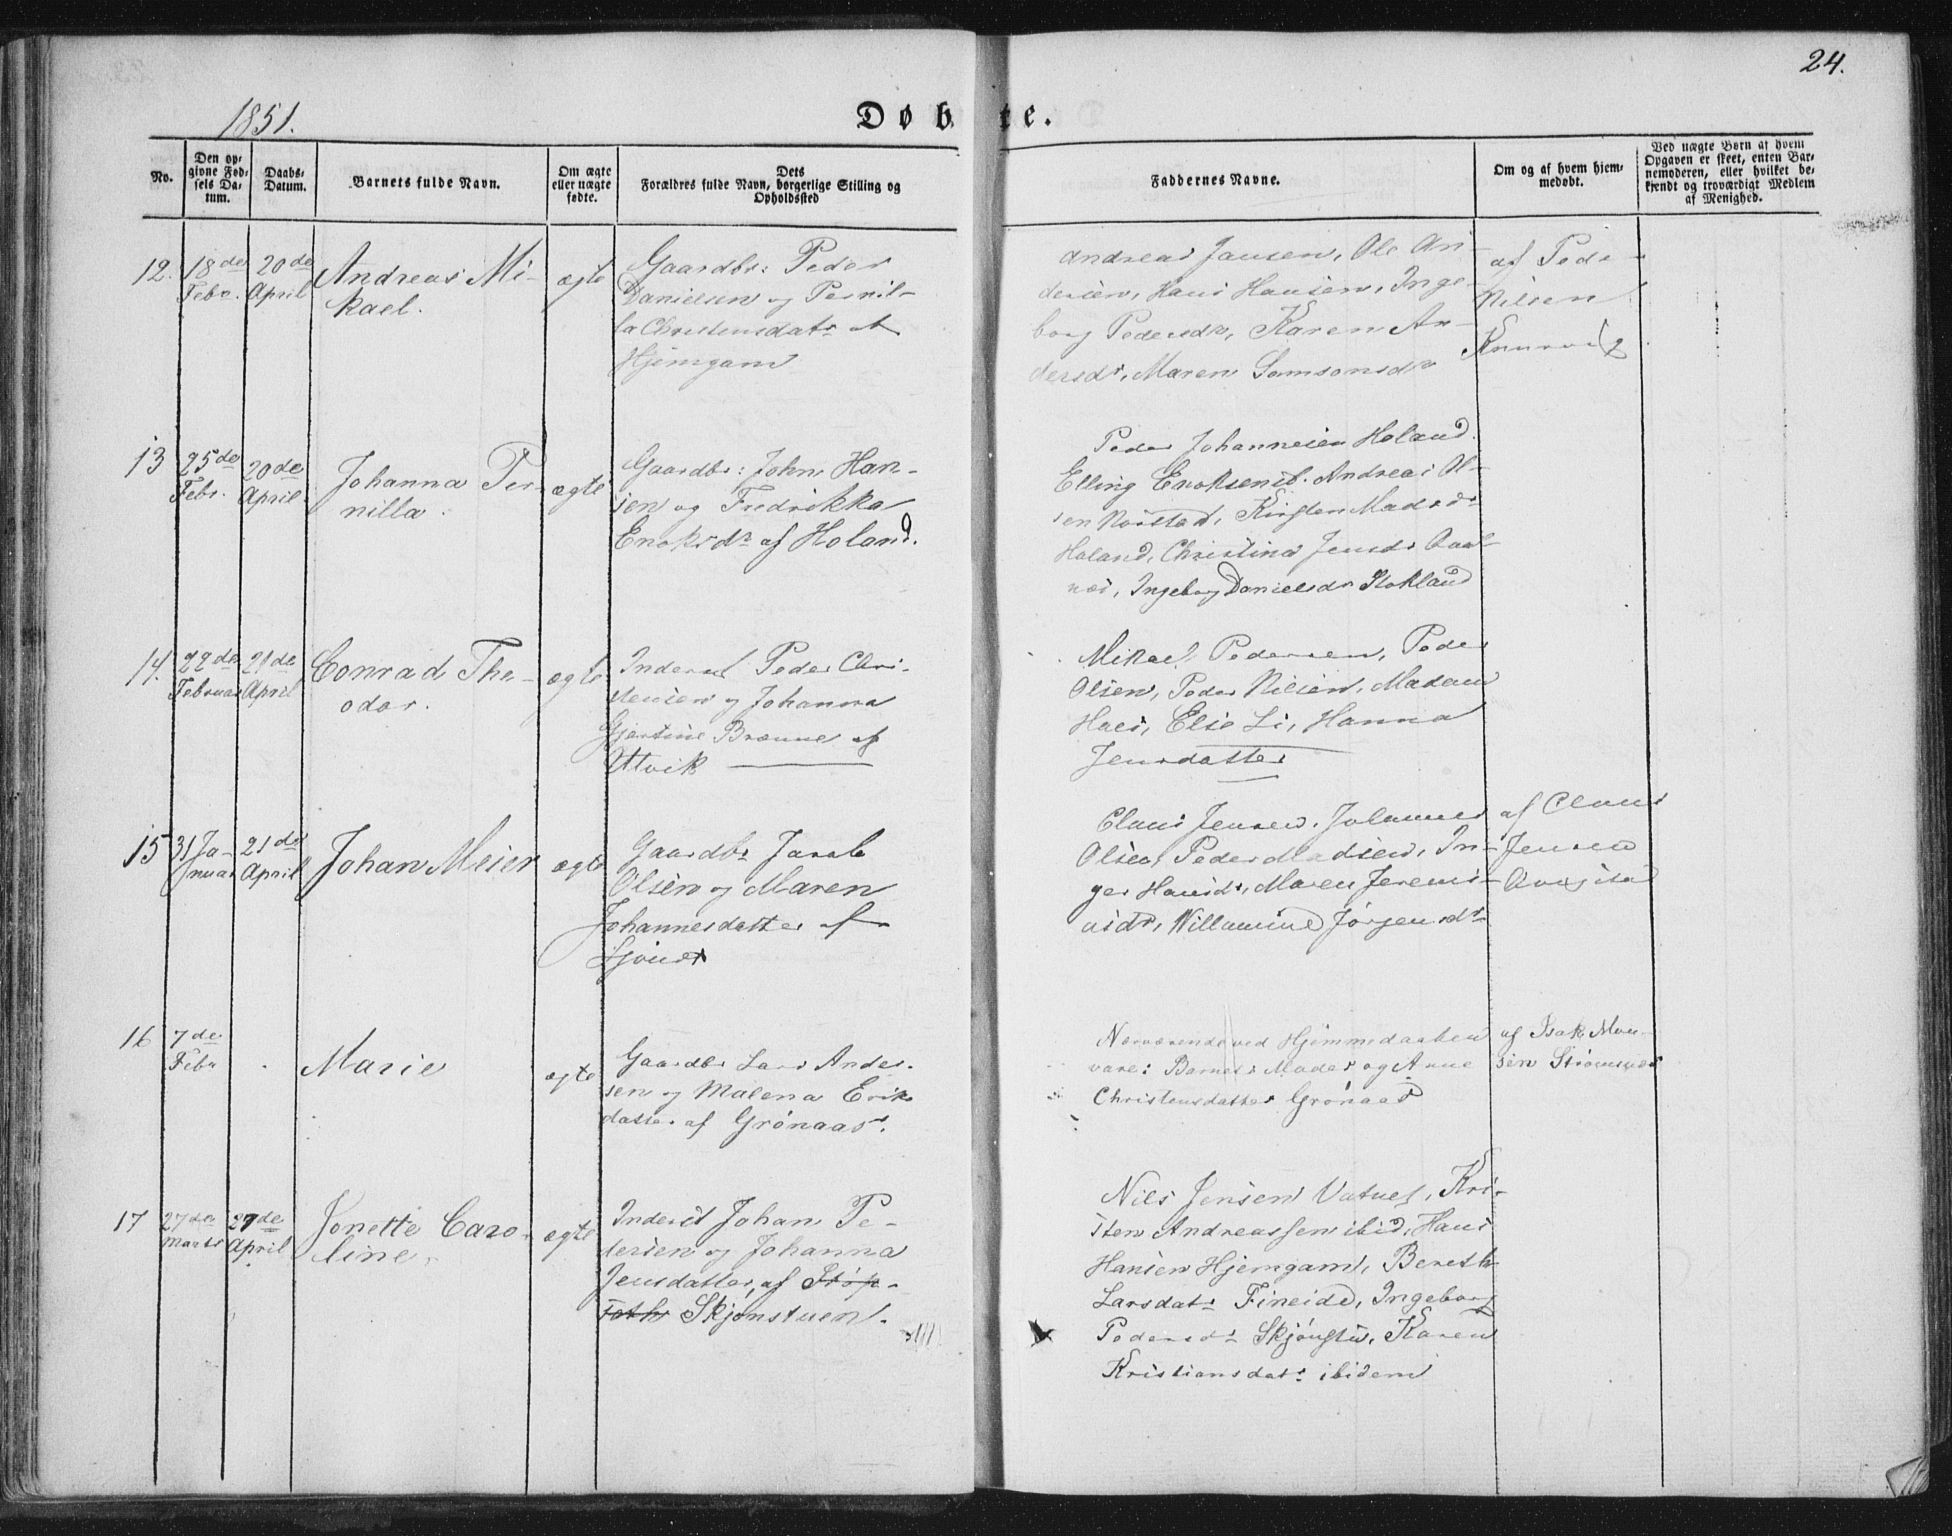 24.
1851.
Døbte.
No.
Den op-
givne Fød-
sels Da-
tum.
Daabs-
Datum.
Barnets fulde Navn.
Om ægte
eller uægte
fødte.
Dets
Forældres fulde Navn, borgerlige Stilling og
Opholdssted
Faddernes Navne.
Om og af hvem hjem-
medøbt.
Ved uægte Børn af hvem
Opgaven er skeet, enten Bar-
nemoderen, eller hvilket be-
kjendt og troværdigt Medlem
af Menighed.
12.
18de
Febr.
20de
April
Andreas Mi-
kael.
ægte
Gaardbr: Peder
Danielsen og Pernil-
la Christensdatr af
Hjemgam
Andreas Jansen, Ole An-
dersen, Hans Hansen, Inge-
borg Pedersdr, Karen An-
dersdr, Maren Samsonsdr
af Peder
Nilsen
13
25de
Febr.
20de
April
Johanna Per-
nilla.
ægte
Gaardbr: John Han-
sen og Fredrikka
Enoksdr af Holand.
Peder Johannesen Holand.
Elling Enoksen ib. Andreas Ol-
sen Norstad, Kirsten Madsdr
Holand, Christina Jensdr Aaal-
næs, Ingeborg Danielsdr Stokland
14.
22de
Februar
21de
April
Conrad The-
odor.
ægte
Inderst Peder Chri-
stensen og Johanna
Gjertine Brønne af
Utvik
Mikael Pedersen, Peder
Olsen, Peder Nilsen, Madam
Haes, Else Li, Hanna
Jensdatter
15
31 Ja-
nuar
21de
April
Johan Meier
ægte
Gaardbr Jacob
Olsen og Maren
Johannesdatter af
Claus Jensen, Johannes
Olsen, Peder Madsen, In-
ger Hansdr, Maren Jeremi-
asdr, Willumine Jørgensdr
af Claus
Jensen
16
7de
Febr
Marie
ægte
Gaardbr Lars Ander-
sen og Malena Erik-
datter af Grønaas.
Nærværende ved Hjemmedaaben
vare: Barnets Moder og Anne
Christensdatter Grønaas
af Isak Mon-
sen Strømsnes
17
27de
Marts
27de
April
Jonette Caro-
line.
ægte
Inderst Johan Pe-
dersen og Johanna
Jensdatter, af Støp-
foth Skjønstuen.
Nils Jensen Vatnet, Kri-
sten Andreassen ibid, Hans
Hansen Hjemgam, Bereth
Larsdatr Fineide, Ingeborg
Pedersdr Skjønstu, Karen
Kristiansdatr ibidem